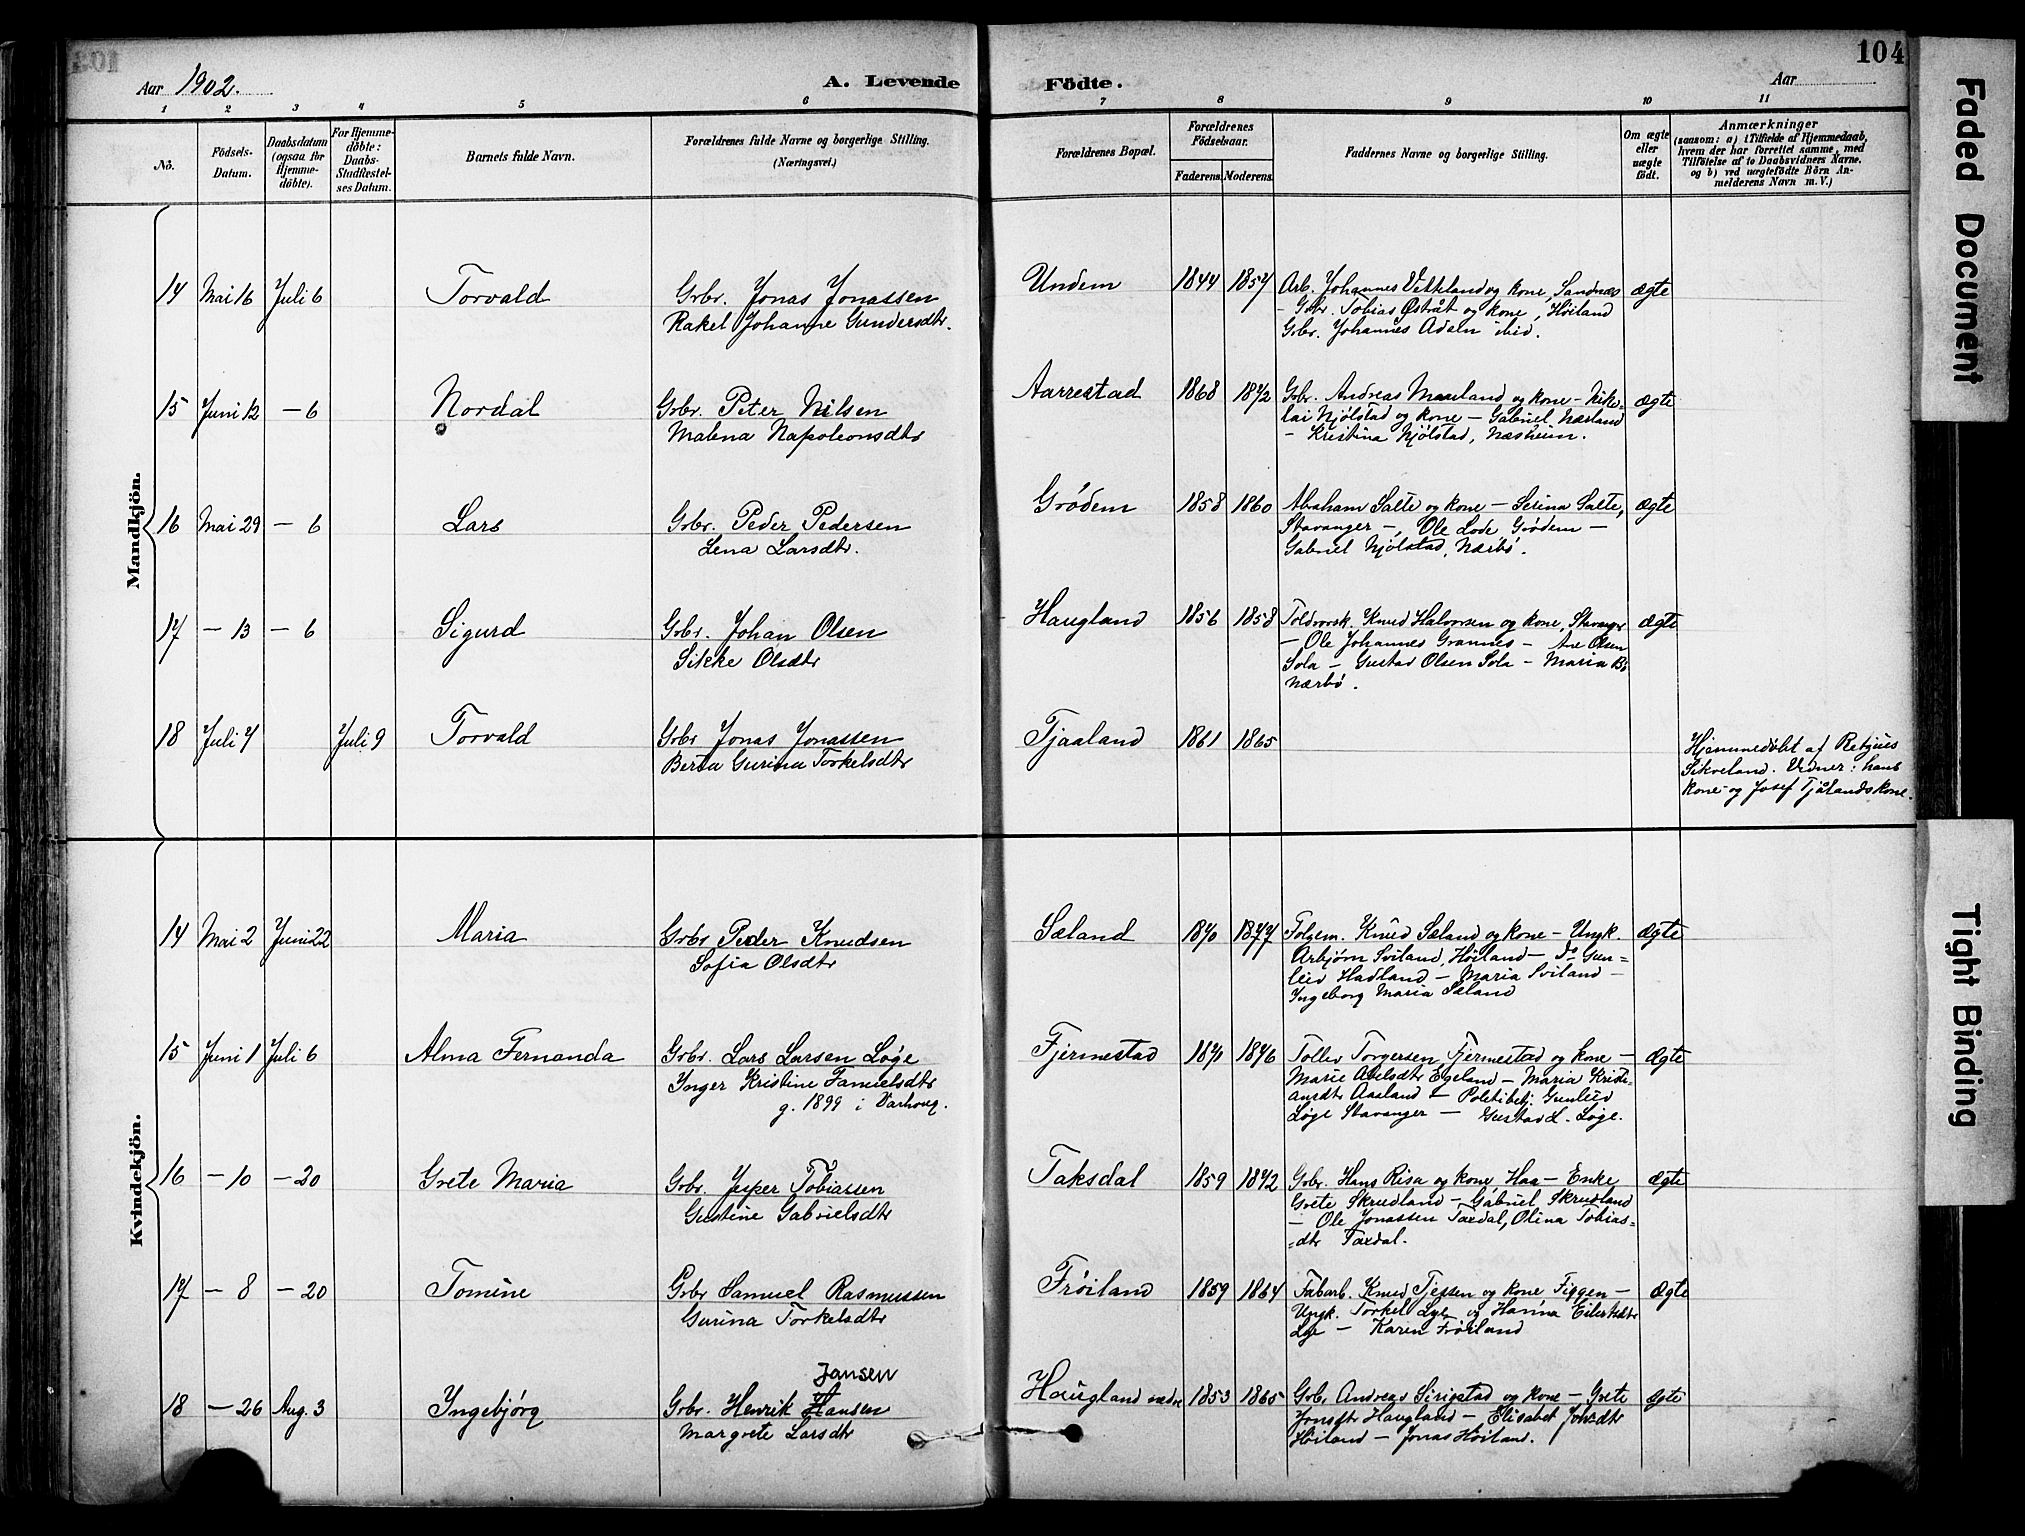 104
Aar 1902.
A. Levende Födte.
Aar
1 2 3 4 5 6 7 8 9 10 11
Nō.
Födsels-Datum.
Daabsdatum (ogsaa for Hjemmedöbte).
For Hjemmedöbte: Daabs-Stadfæstelses Datum.
Barnets fulde Navn.
Forældrenes fulde Navne og borgerlige Stilling.
(Næringsvei.)
Forældrenes Bopæl.
Forældrenes Födselsaar.
Faderens. Moderens.
Faddernes Navne og borgerlige Stilling.
Om ægte eller uægte födt.
Anmærkninger
(saasom: a) i Tilfælde af Hjemmedaab,
hvem der har forrettet samme, med
Tilföielse af to Daabsvidners Navne.
og b) ved uægtefödte Börn An-
melderens Navn m. V.)
Mandkjön.
14 Mai 16 Juli 6 Torvald Grbr. Jonas Jonassen
Rakel Johanne Gundersdtr.
Undem 1844 1857 Arb. Johannes Vetkland og kone, Sandnæs ægte
- Grbr. Tobias Østråt og kone, Høiland
Grbr. Johannes Adeln ibid.
15 Juni 12 - 6 Nordal Grbr. Peter Nilsen
Malena Napoleonsdtr
Aarrestad 1868 1872 Grbr. Andreas Maurland og kone - Niko- ægte
lai Njølstad og kone - Gabriel Næsland
- Kristina Njølstad, Næsheim.
16 Mai 29 - 6 Lars Grbr. Peder Pedersen
Lena Larsdtr.
Grødem 1858 1860 Abraham Salte og kone - Serina Salte, ægte
Stavanger -, Ole Lode Grødem -
Gabriel Njølstad, Nærbø.
17 - 13 - 6 Sigurd Grbr. Johan Olsen
Sikke Olsdtr
Haugland 1856 1858 Toldvorsk. Knud Halvorsen og kone, Stavanger ægte
- Ole Johannes Grannes - Ane Olsen
Sola - Gustav Olsen Sola - Maria Bø
Nærbø.
18 Juli 7 Juli 9 Torvald Grbr Jonas Jonassen
Berta Gurina Torkelsdtr
Tjaaland 1861 1865
Hjemmedøbt af Retjues
Sikveland. Vidner: hans
kone og Josef Tjålands kone.
Kvindekjön.
14 Mai 2 Juni 22 Maria Grbr Peder Knudsen
Sofia Olsdtr
Sæland 1870 1877 Folgem. Knud Sæland og kone - Ungk. ægte
Arbjørn Sviland, Høiland - Do Gun=
leiv Hadland - Maria Sviland -
Ingeborg Maria Sæland
15 Juni 1 Juli 6 Alma Fernanda Grbr. Lars Larsen Løge
Inger Kristine Samuelsdtr
g. 1899 i Varhoug.
Fjermestad 1870 1876 Tollev Torgersen Fjermestad og kone - Ægte
Marie Axelsdtr Egeland - Maria Kristi=
ansdtr Aaaland - Politibetj. Gunleiv
Løge Stavanger - Gustav L. Løge.
16 - 10 - 20 Grete Maria Grbr. Jesper Tobiassen
Gustine Gabrielsdtr
Taksdal 1859 1872 Grbr. Hans Risa og kone, Haa - Enke ægte
Grete Skrudland - Gabriel Skrudland
- Ole Jonassen Taxdal, Olina Tobias=
=dtr Taxdal.
17 - 8 - 20 Tomine Grbr Samuel Rasmussen
Gurina Torkelsdtr
Frøiland 1859 1864 Fabarb. Knud Tjessen og kone Figgen - Ægte
Ungk. Torkel Lye og Hanna Eilertsdtr
Lye - Karin Frøiland
18 - 26 Aug. 3 Ingebjørg Jansen
Grbr. Henrik Hansen
Margrete Larsdtr
Haugland nedre 1853 1865 Grb. Andreas Sirigstad og kone - Grete ægte
Jonsdtr Haugland - Elisabet Johsdtr
Høiland - Jonas Høiland.
Faded Document
Tight Binding